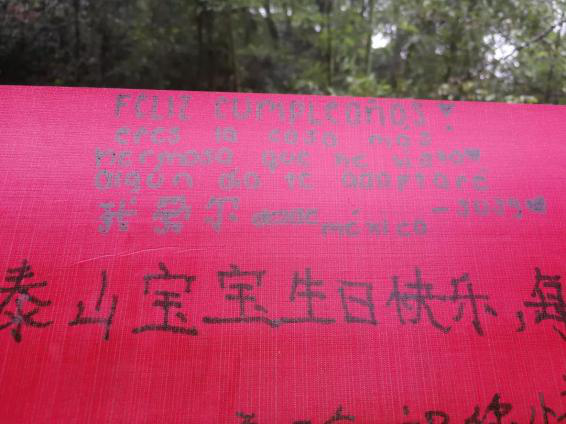 FELIZ CUMPLEAÑOS
eres la cosa más
hermosa que he visto
algún día te adoptaré
我爱你 desde méxico
泰山宝宝生日快乐,每
祝你